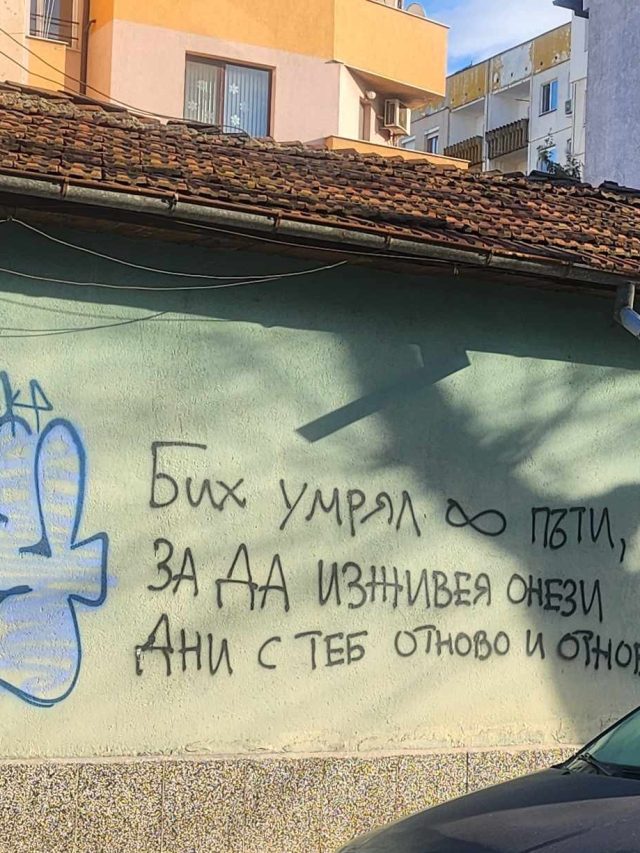 Бих умрял ∞ пъти,
за да изживея онези
дни с теб отново и отнов